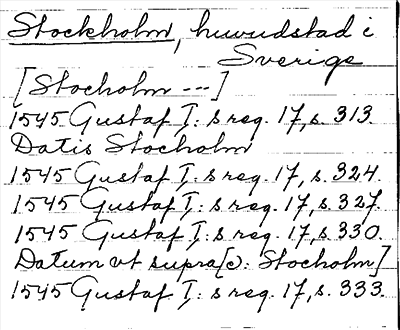 Stockholm, huvudstad i
Sverige
[Stocholm ---]
1545 Gustaf I: s reg. 17, s. 313.
Datis Stocholm
1545 Gustaf I: s reg. 17, s. 324.
1545 Gustaf I: s reg. 17, s. 327.
1545 Gustaf I: s reg. 17, s. 330.
Datum vt supra[ɔ: Stocholm]
1545 Gustaf I: s reg. 17, s. 333.